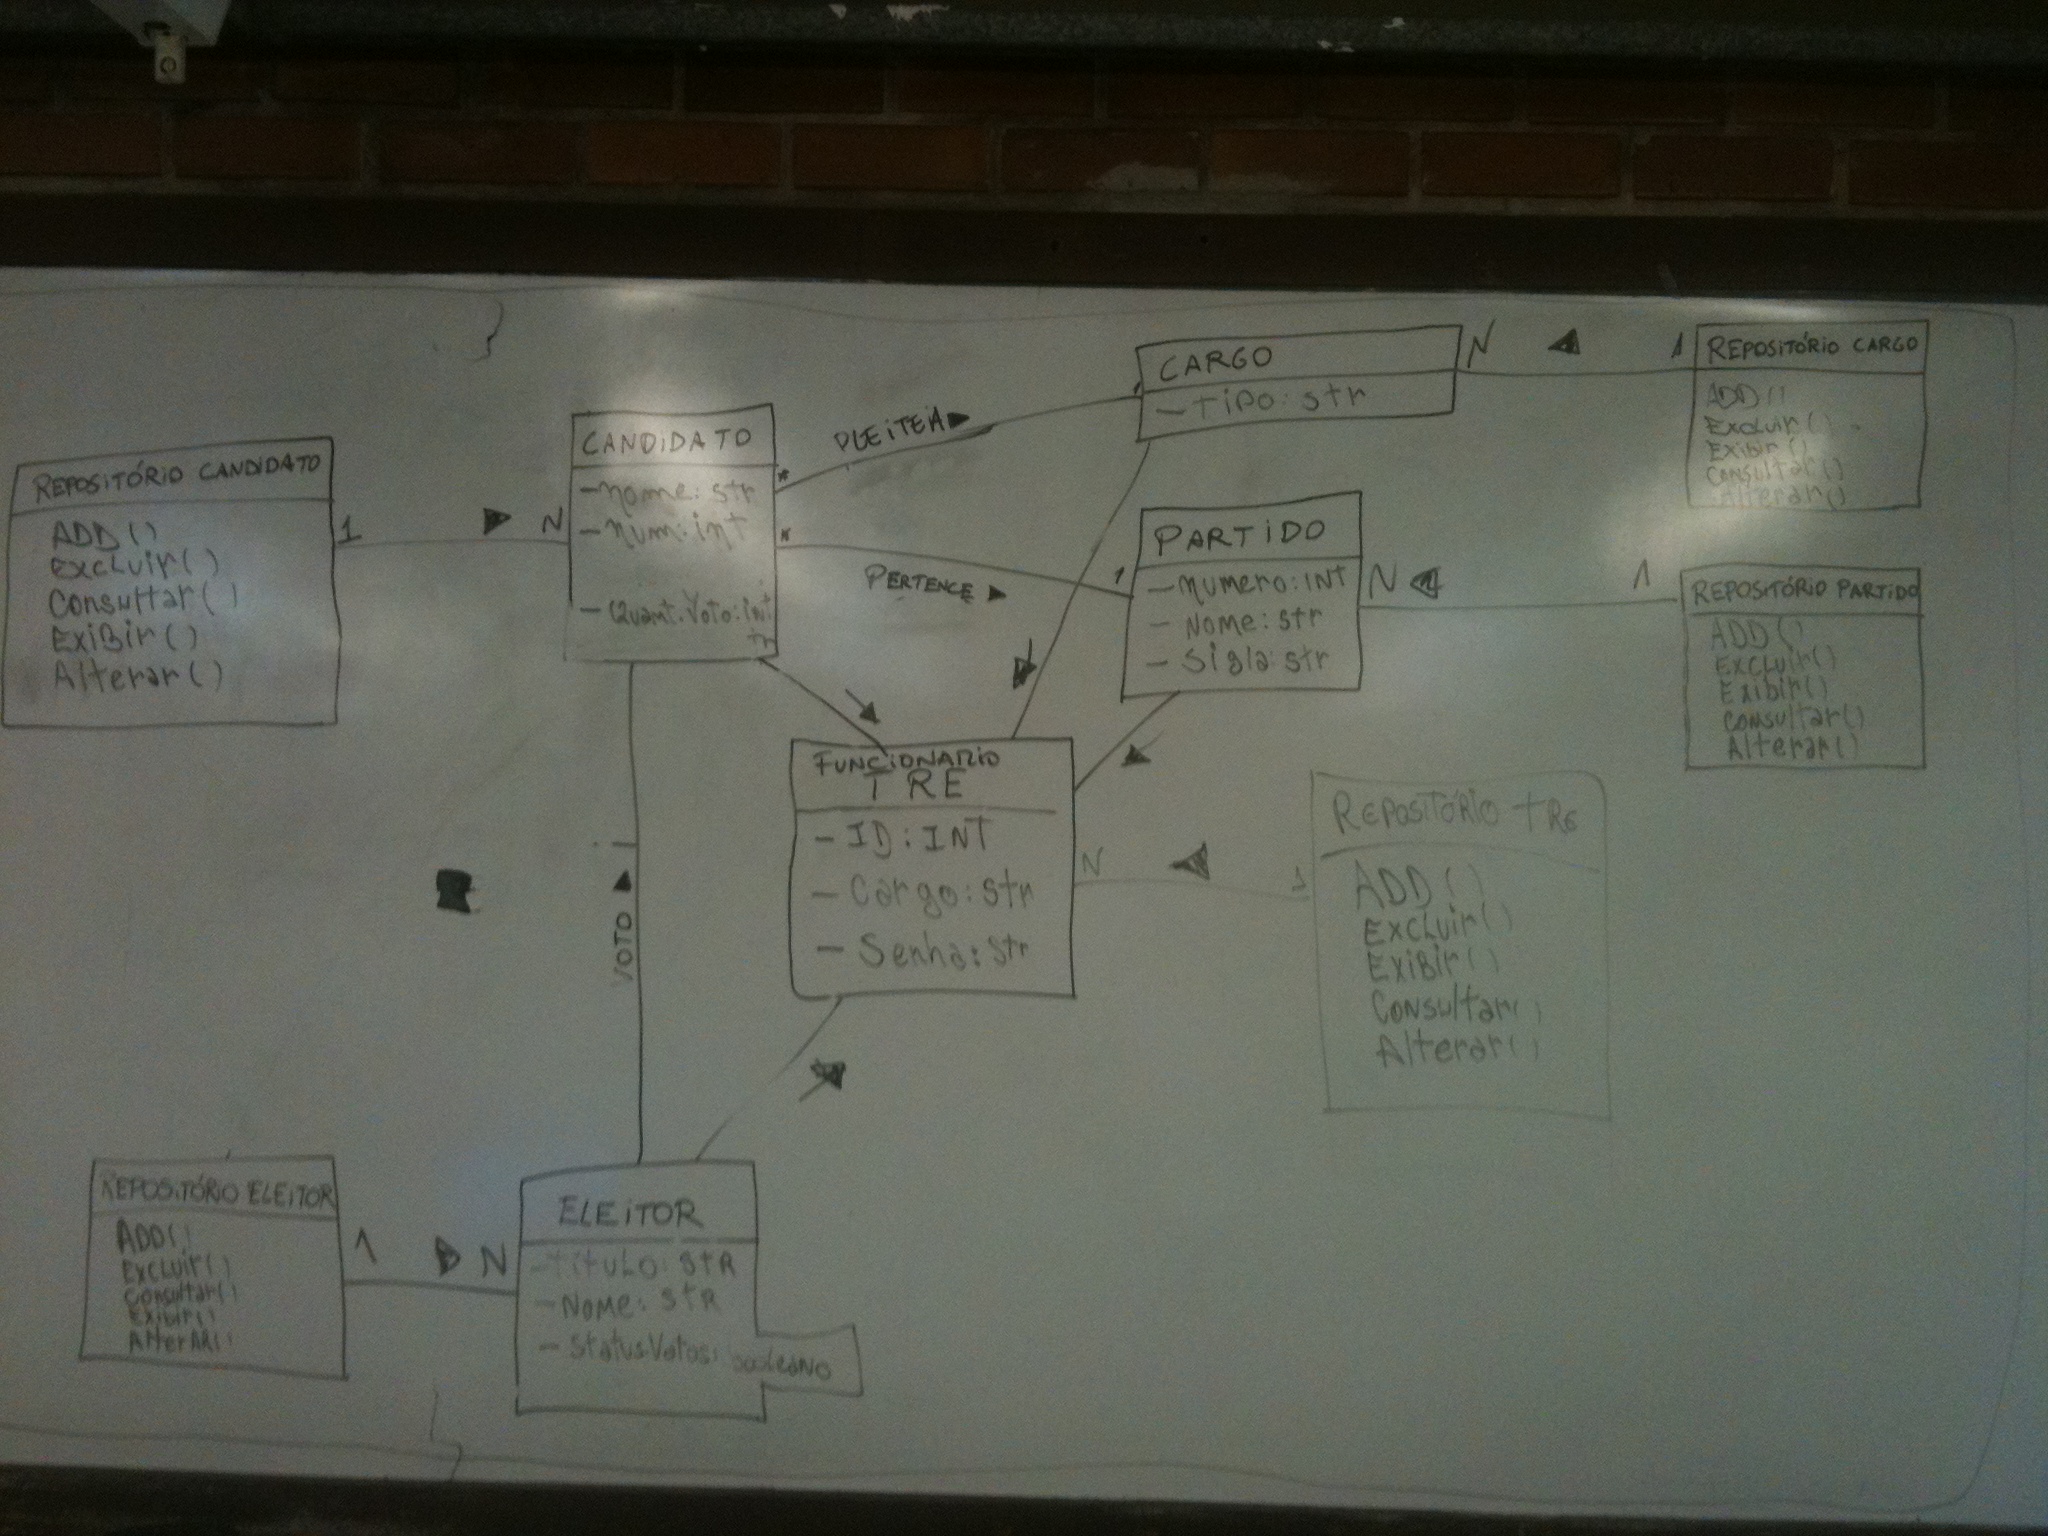 REPOSITÓRIO CANDIDATO
ADD()
Excluir()
Consultar()
Exibir()
Alterar()
1
N
CANDIDATO
-nome: str
-num: int
-Quant.Voto: int
PLEITEIA
*
CARGO
-Tipo: str
N
1
REPOSITÓRIO CARGO
ADD()
Excluir()
Exibir()
Consultar()
Alterar()
*
PERTENCE
1
PARTIDO
-numero: INT
-Nome: str
-Sigla: str
N
1
REPOSITÓRIO PARTIDO
ADD()
Excluir()
Exibir()
Consultar()
Alterar()
FUNCIONARIO
TRE
-ID: INT
-Cargo: str
-Senha: str
N
1
REPOSITÓRIO TRE
ADD()
Excluir()
Exibir()
Consultar()
Alterar()
VOTO
REPOSITÓRIO ELEITOR
ADD()
Excluir()
Consultar()
Exibir()
AlterAR()
1
N
ELEITOR
-Título: STR
-Nome: STR
-StatusVotos: booleano